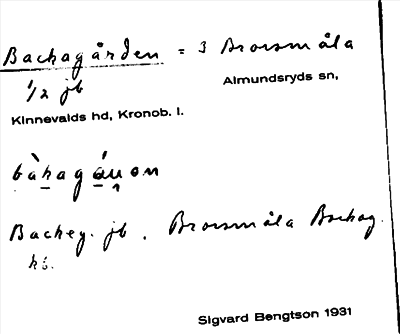 Backagården = 3 Brorsmåla
1/2 jb
Almundsryds sn,
Kinnevalds hd, Kronob. l.
bàhagáu̯on
Backeg. jb. Brorsmåla Backag.
hs.
Sigvard Bengtson 1931